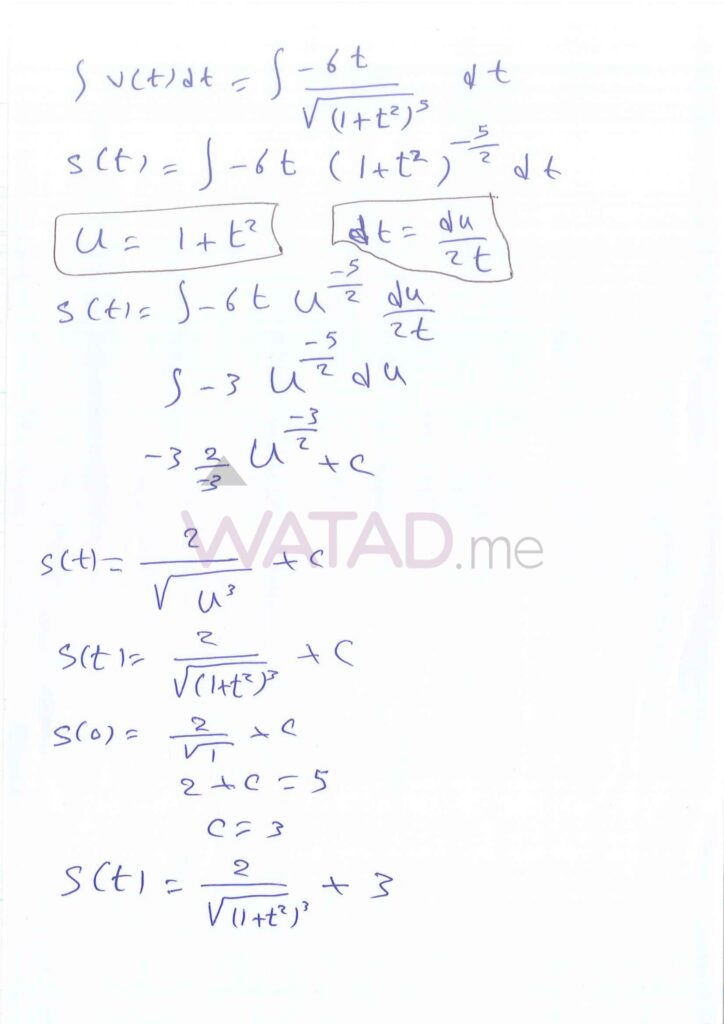 ∫ v(t) dt = ∫ -6t / √(1+t²)⁵ dt
s(t) = ∫ -6t (1+t²)^(-5/2) dt
u = 1+t² dt = du/2t
s(t) = ∫ -6t u^(-5/2) du/2t
∫ -3 u^(-5/2) du
-3 2/-3 u^(-3/2) + c
WATAD.me
s(t) = 2/√u³ + c
s(t) = 2/√(1+t²)³ + c
s(0) = 2/√1 + c
2 + c = 5
c = 3
s(t) = 2/√(1+t²)³ + 3